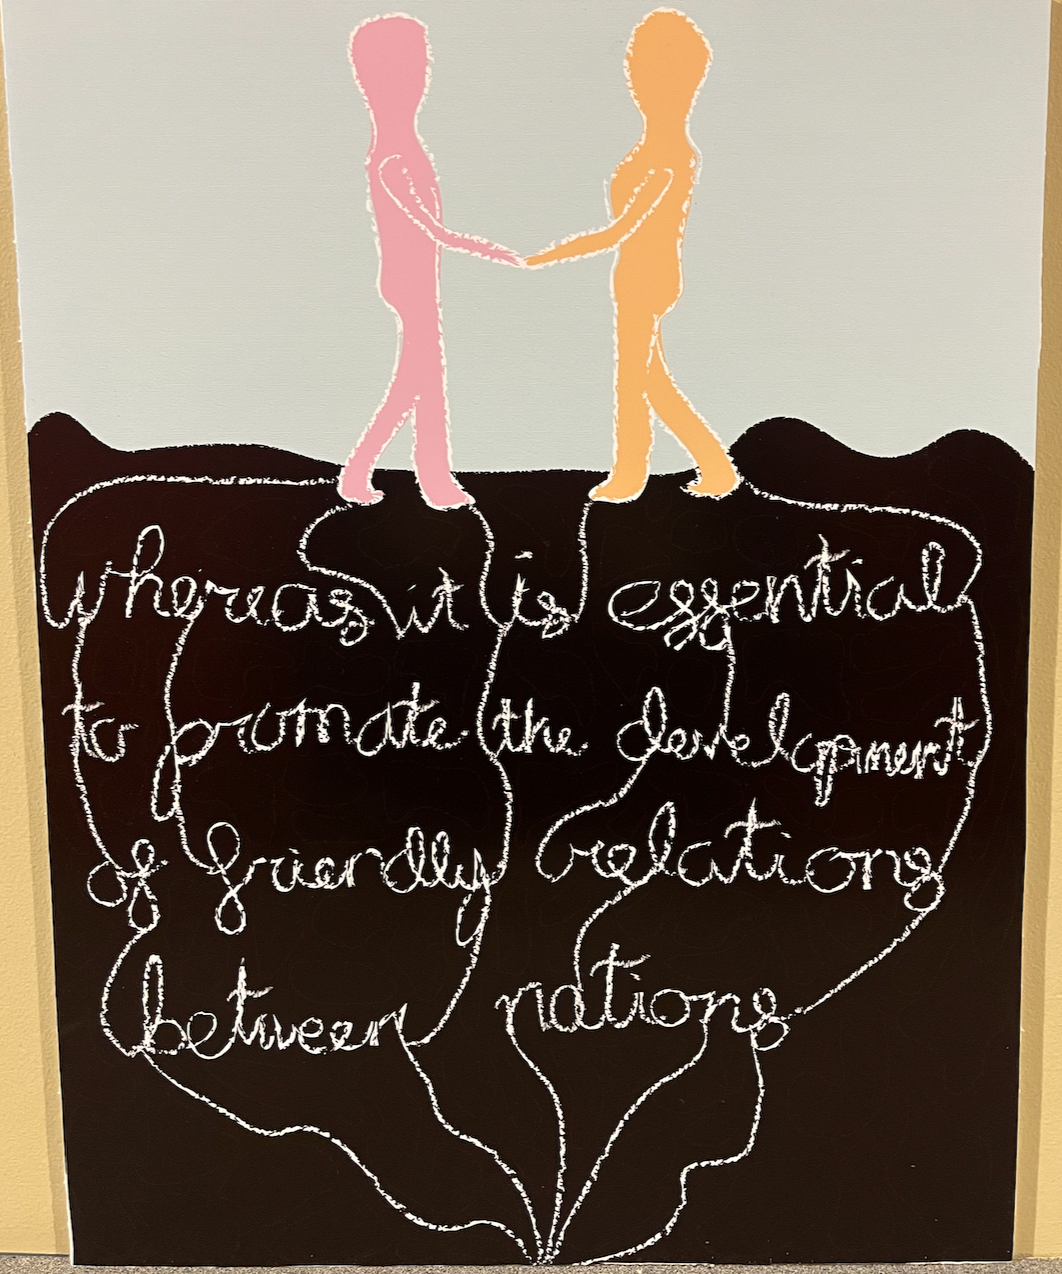 whereas it is essential
to promote the development
of friendly relations
between nations